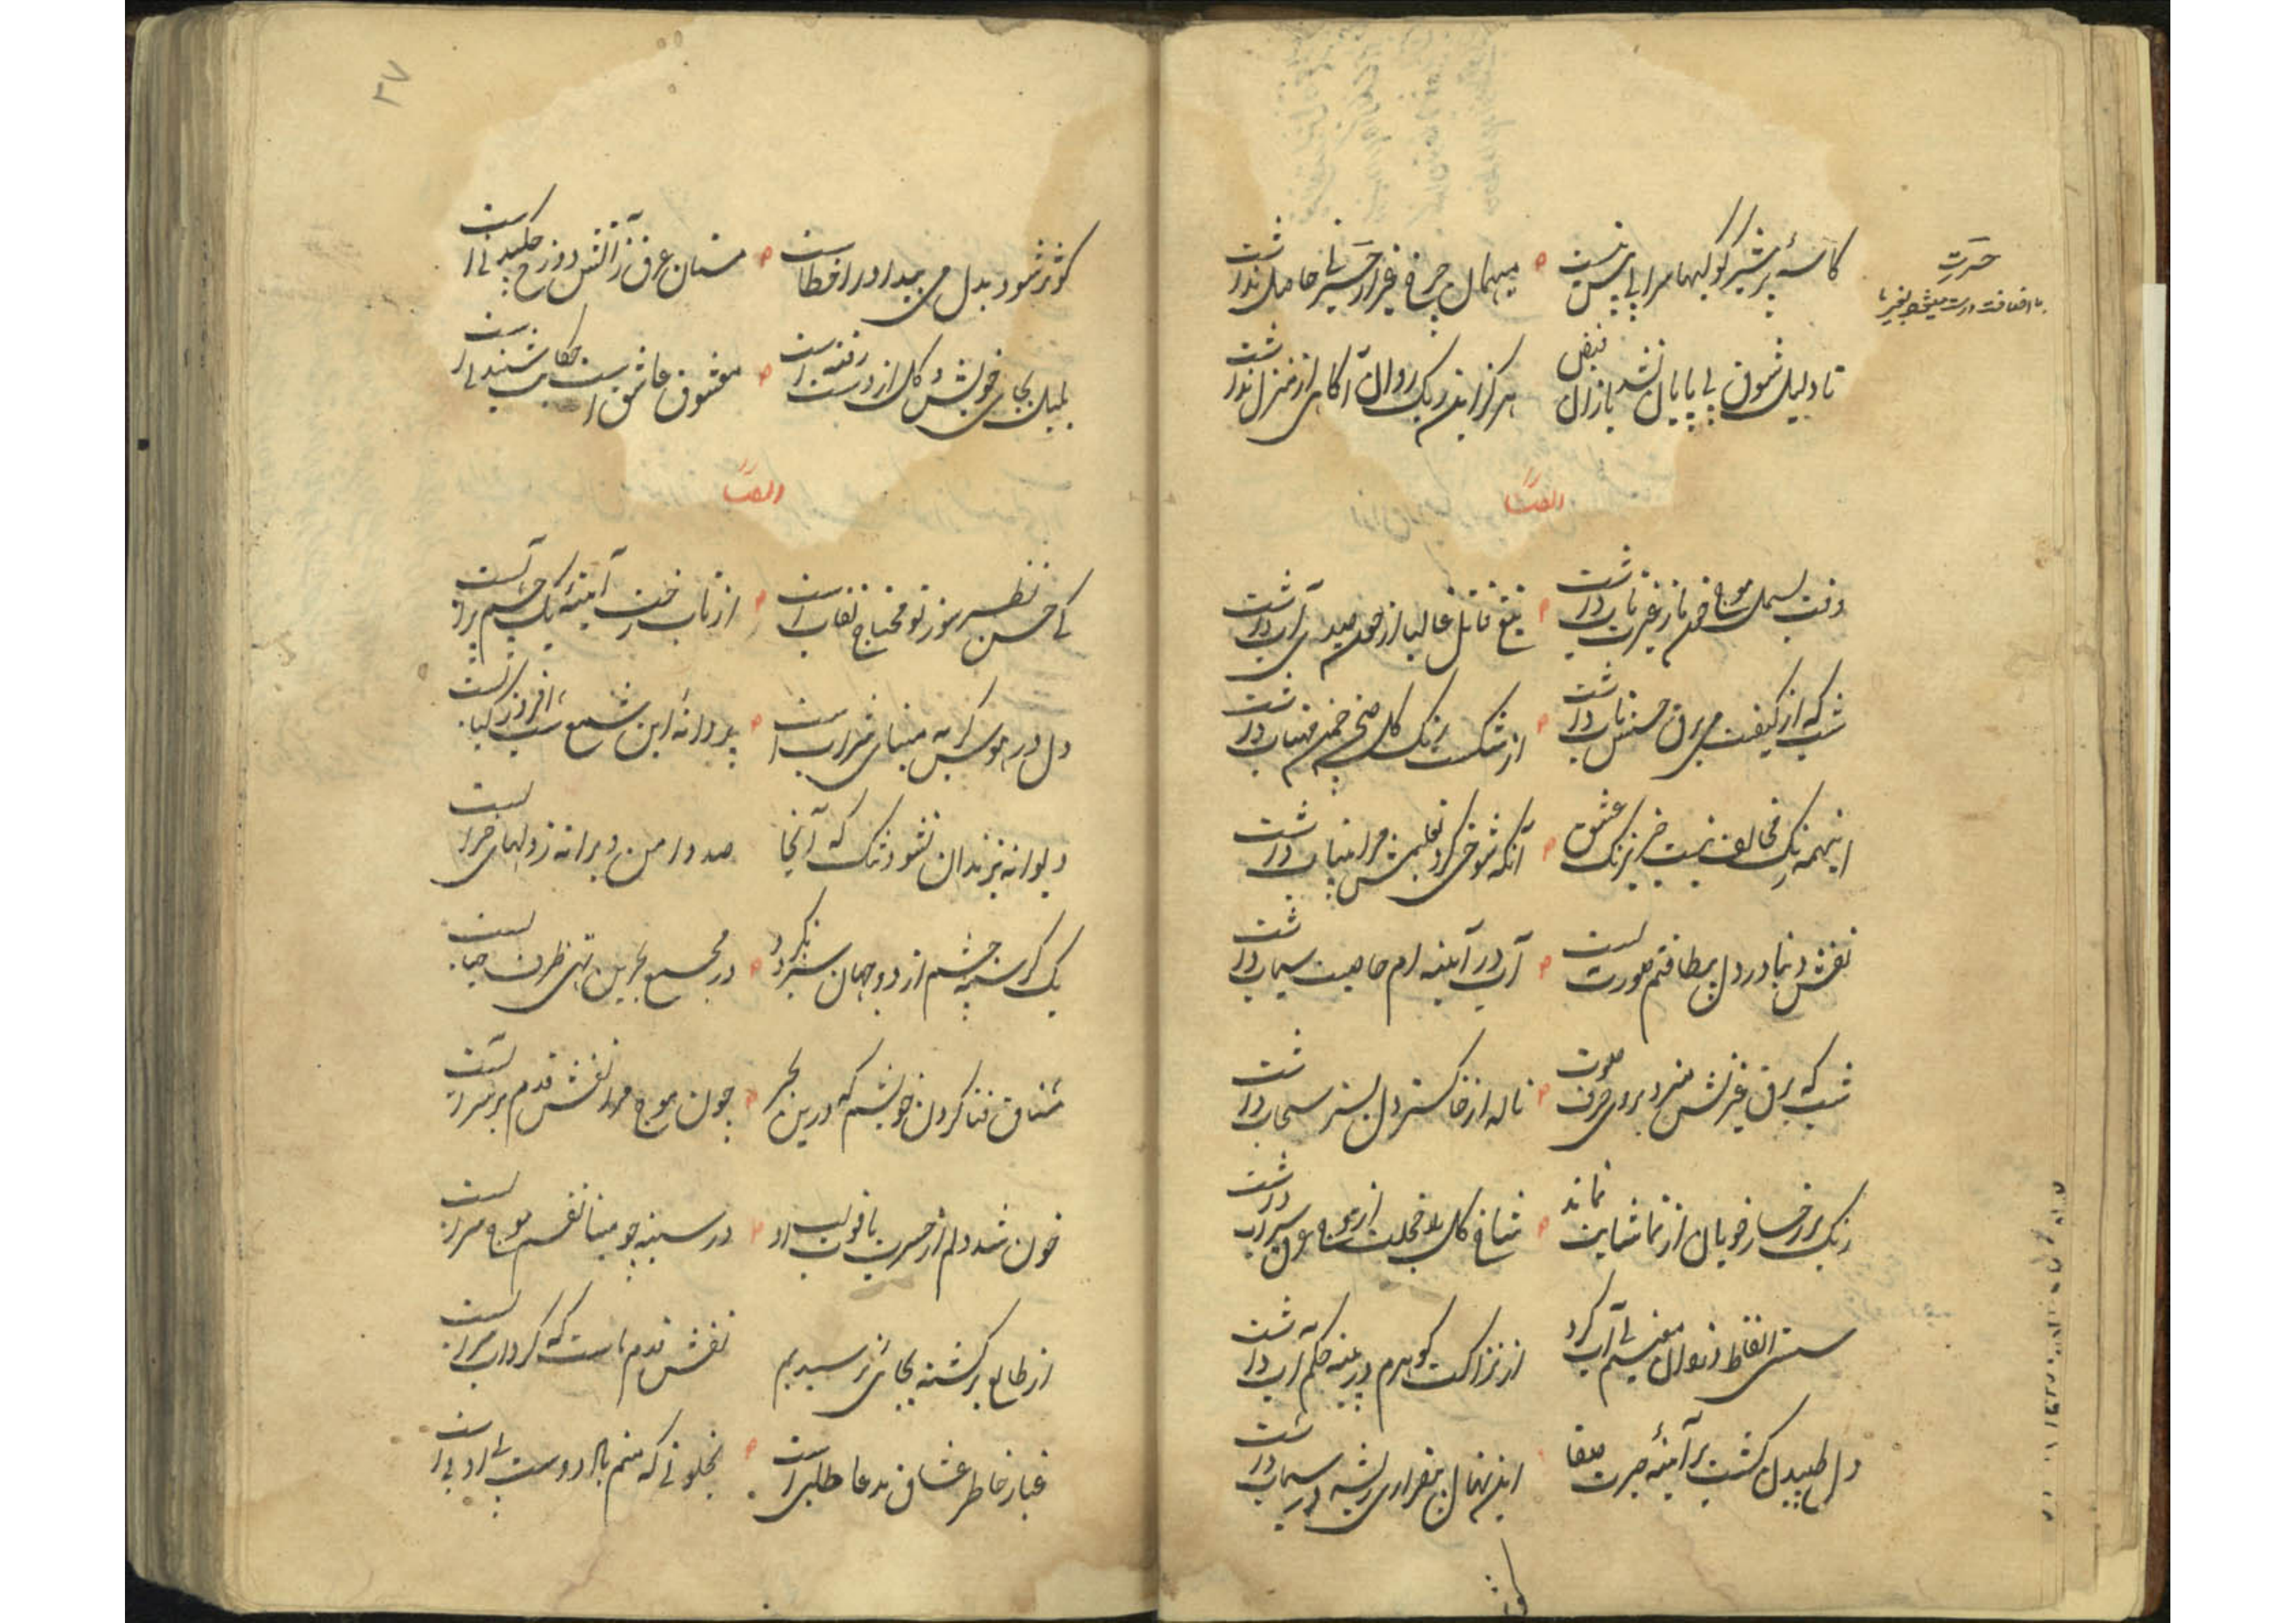 کاسهٔ پر شیر گوکبها سراپایش نیست
میهمان چرخ غیر از حسرتی حاصل نداشت
حسرت
تا دلیل شوق بی پایان نشد نبض بازان
هرگز این ریگ روان آگاهی از منزل نداشت
ایضاً
وقت بسمل موج خونم باز غیرت تاب داشت
تیغ قاتل غالبا از خون صیدی آب داشت
شب که از کیفیت می برق حسنش تاب داشت
از شکست رنگ گل صحن چمن مهتاب داشت
اینهمه رنگ مخالف نیست جز نیرنگ عشق
آنکه شوخی کرد تعلیمش مرا بیتاب داشت
نقش دنیا در دل بیطاقتم صورت نبست
آب در آئینه ام خاصیت سیماب داشت
شب که برق غیرتش میزد بروی حرف صوت
ناله از خاکستر دل بستر سنجاب داشت
رنگ بر رخسار خوبان از تماشایت نماند
شاخ گل بار خجلت از موج سیراب داشت
سستی الفاظ معنیم بی آب کرد
از نزاکت گوهرم در بیضه حکم آب داشت
دل طپیدن گشت بر آئینه حیرت صفا
این نهال بیقراری ریشه در سیماب داشت
۳۷
کوثر شود بدل می بیدار در اخطاست
مستان عرق ز آتش دوزخ چکیدنی است
بلبل بجای خویش و گل از دست رفته است
معشوق عاشق است حکایت شنیدنی است
ایضاً
کی حسن نظر سوز تو محتاج نقاب است
از تاب رخت آینه یک چشم پر آبست
دل در هوس گریه مینای شراب است
پروانهٔ این شمع شب افروز کبابست
دیوانه بزندان نشود تنگ که آنجا
صد دامن ویرانه ز دلهای خرابست
یک گرسنه چشم از دو جهان سیر نگردد
در مجمع بحرین تهی ظرف حبابست
مشتاق فنا کردن خویشم که درین بحر
چون موج مرا نقش قدم بر سر آبست
خون شد دلم از حسرت یاقوت لب او
در سینه چو مینا نفسم موج شرابست
از طالع برگشته بجائی نرسیدیم
نقش قدم ماست که گرداب سرابست
غبار خاطر عشاق مدعا طلبی است
بخلوتی که منم یاد دوست بی ادبی است